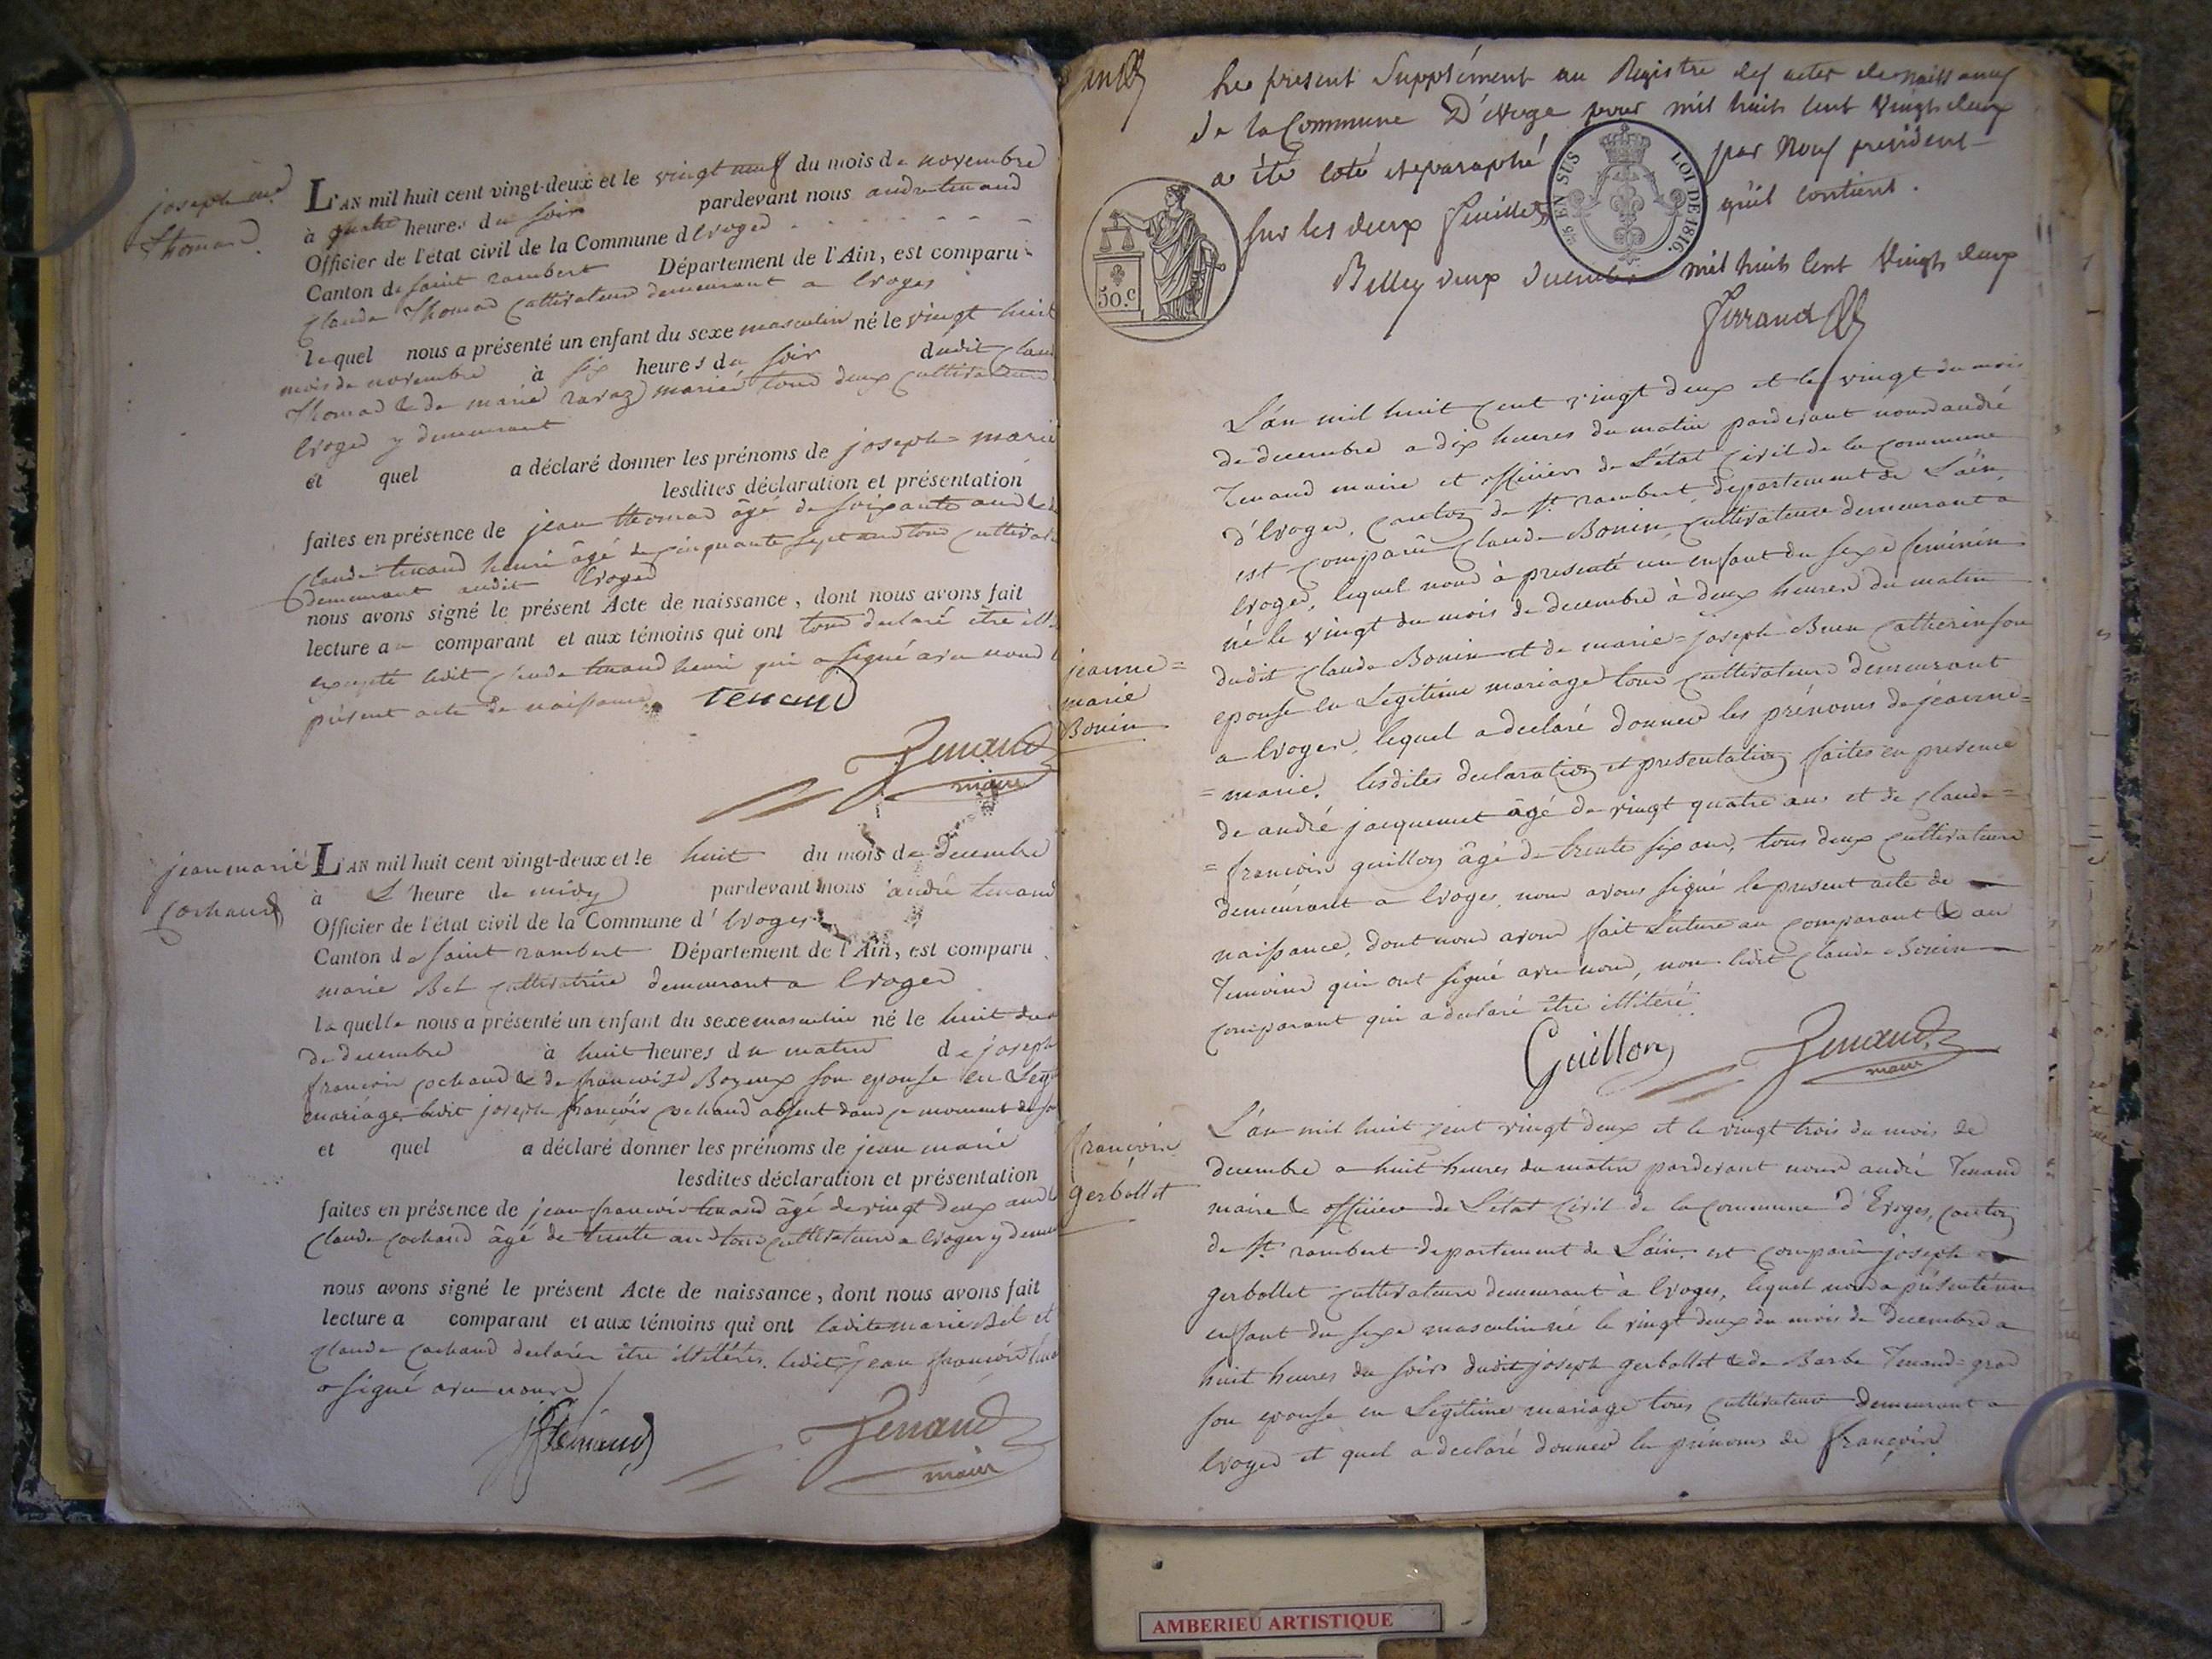 joseph mie
Thomas
L'AN mil huit cent vingt-deux et le vingt neuf du mois de novembre
à quatre heures du soir pardevant nous andré tenand
Officier de l'état civil de la Commune d'Evoges
Canton de saint rambert Département de l'Ain, est comparu
Claude Thomas Cultivateur demeurant a Evoges
lequel nous a présenté un enfant du sexe masculin né le vingt huit
mois de novembre à six heures du soir dudit Claude
Thomas & de marie ravaz mariés tous deux Cultivateurs
Evoges y demeurant
et quel a déclaré donner les prénoms de joseph = marie
lesdites déclaration et présentation
faites en présence de jean thomas âgé de soixante ans &
Claude tenand henri âgé de Cinquante sept ans tous Cultivat
demeurant audit Evoges
nous avons signé le présent Acte de naissance, dont nous avons fait
lecture au comparant et aux témoins qui ont tous declaré être ill
excepté ledit Claude tenand henri qui a signé avec nous le
présent acte de naissance tenand
Tenand
maire
jean marie
Cochand
L'AN mil huit cent vingt-deux et le huit du mois de decembre
à L'heure de midy pardevant nous andré tenand
Officier de l'état civil de la Commune d'Evoges
Canton de saint rambert Département de l'Ain, est comparu
marie Bel Cultivatrice demeurant a Evoges
laquelle nous a présenté un enfant du sexe masculin né le huit du
de decembre à huit heures du matin de joseph
françois Cochand & de françoise Bozeux son epouse en Legt
mariage ledit joseph françois Cochand absent dans ce moment de so
et quel a déclaré donner les prénoms de jean marie
lesdites déclaration et présentation
faites en présence de jean françois tenand âgé de vingt deux ans &
Claude Cochand âgé de trente ans tous Cultivateurs a Evoges y demeu
nous avons signé le présent Acte de naissance, dont nous avons fait
lecture a comparant et aux témoins qui ont ladite marie Bel et
Claude Cochand declarés être illitérés. ledit jean françois tena
a signé avec nous
jf tenand
Tenand
maire
Le present Supplément au Registre des actes de naissances
de la Commune D'evoge pour mil huit cent vingt deux
a été coté et paraphé par nous président
sur les deux feuillets qu'il contient.
Belley deux decembre mil huit cent vingt deux
Ferrand
50.c
EN SUS
LOI DE 1816.
jeanne =
marie
Bonin
L'án mil huit Cent vingt deux et le vingt du mois
de decembre a dix heures du matin pardevant nous andré
Tenand maire et officier de L'état Civil de la Commune
d'Evoges, Canton de St. rambert, departement de L'áin,
est comparû Claude Bonin, Cultivateur demeurant a
Evoges, lequel nous à presenté un enfant du sexe feminin
né le vingt du mois de decembre à deux heures du matin
dudit Claude Bonin et de marie = joseph Buen Catherin son
epouse en Légitime mariage tous Cultivateurs demeurant
a Evoges, lequel a declaré donner les prénoms de jeanne =
= marie. lesdites declaration et presentation faites en presence
de andré jacquemet âgé de vingt quatre ans et de Claude =
= françois guillon âgé de trente six ans, tous deux Cultivateurs
demeurant a Evoges, nous avons signé le present acte de
naissance, dont nous avons fait Lecture au Comparant & au
Temoins qui ont signé avec nous, non ledit Claude Bonin
Comparant qui a declaré être illitéré.
Guillon
Tenand
maire
françois
gerbollet
L'án mil huit Cent vingt deux et le vingt trois du mois de
decembre a huit heures du matin pardevant nous andré Tenand
maire & officier de L'état Civil de la Commune d'Evoges, Canton
de St. rambert departement de L'áin, est Comparû joseph
gerbollet Cultivateur demeurant à Evoges, lequel nous a présenté un
enfant du sexe masculin né le vingt deux du mois de decembre a
huit heures du soir dudit joseph gerbollet & de Barbe Tenand = gros
son epouse en Legitime mariage tous Cultivateurs demeurant a
Evoges et quel a declaré donner les prénoms de françois
AMBERIEU ARTISTIQUE